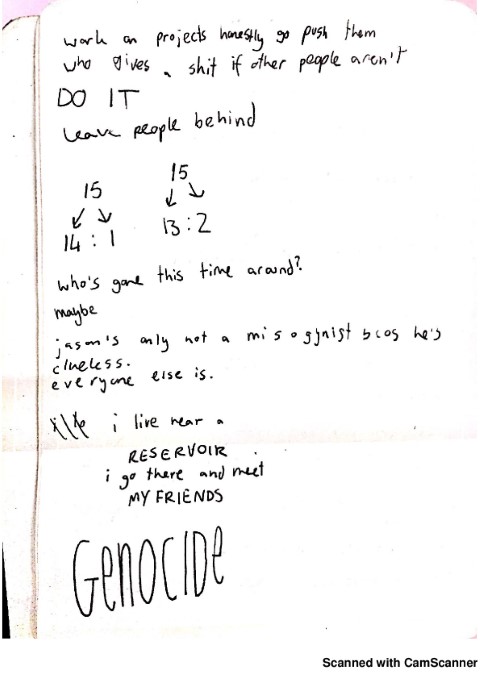 work on projects honestly go push them
who gives a shit if other people aren't
DO IT
leave people behind
15
14 : 1
15
13 : 2
who's gone this time around?
maybe
jason's only not a misogynist bcos he's
clueless.
everyone else is.
i live near a
RESERVOIR
i go there and meet
MY FRIENDS
GENOCIDE
Scanned with CamScanner